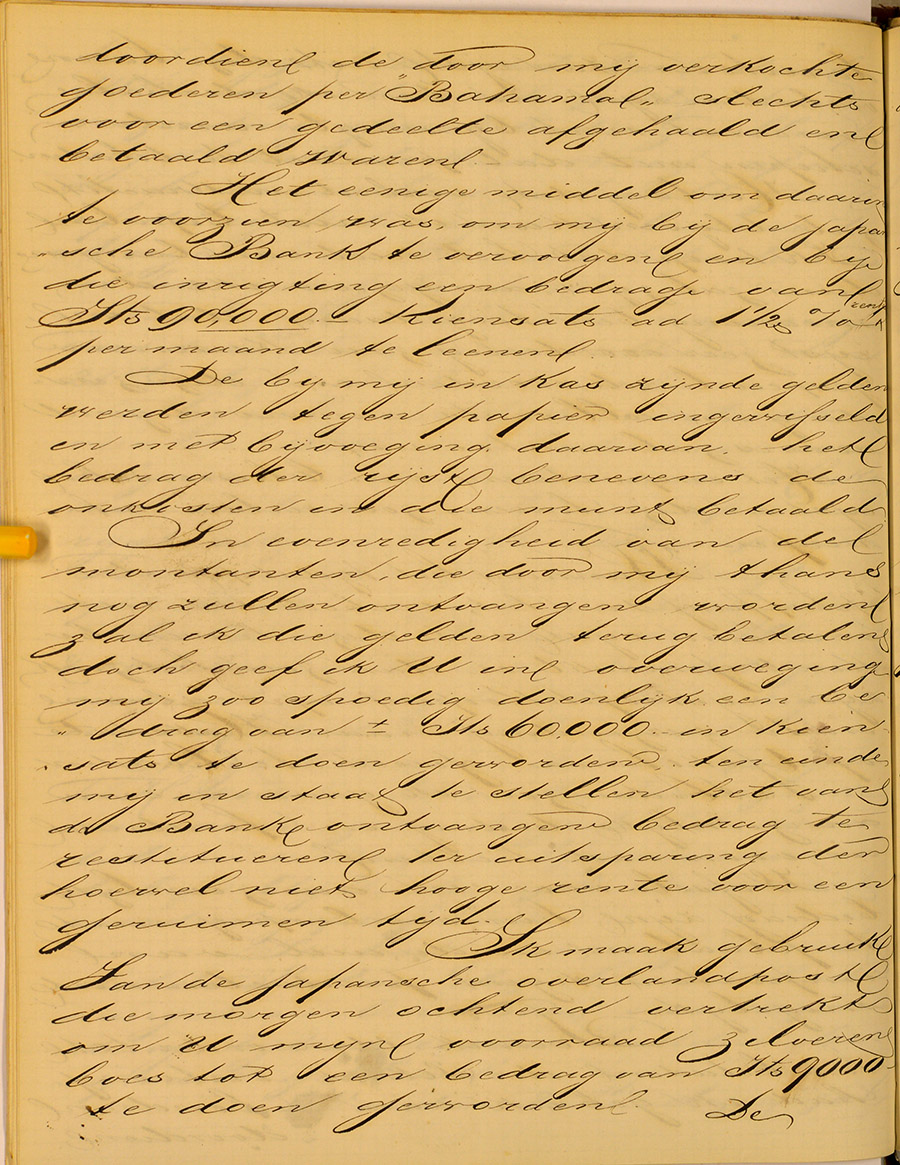 doordien de door mij verkochte
goederen per "Bahama" slechts
voor een gedeelte afgehaald en
betaald waren.
Het eenige middel om daarin
te voorzien was, om mij bij de Japan
"sche Bank te vervoegen en bij
die inrigting een bedrag van
Its 90,000.- Kiensats ad 1½ % rente
per maand te leenen.
De by mij in kas zijnde gelden
werden tegen papier ingewisseld
en met bijvoeging daarvan, het
bedrag der rijst benevens de
onkosten in die munt betaald
In evenredigheid van de
montanten, die door mij thans
nog zullen ontvangen worden
zal ik die gelden terug betalen
doch geef ik U in overweging
mij zoo spoedig doenlijk een be
"drag van ± Its 60.000.- in Kien
"sats te doen geworden, ten einde
mij in staat te stellen het van
de Bank ontvangen bedrag te
restitueren ter uitsparing der
hoewel niet hooge rente voor een
geruimen tijd.
Ik maak gebruik
Van de Japansche overlandpost
die morgen ochtend vertrekt
om U mijn voorraad zilveren
boes tot een bedrag van Its 9000
te doen geworden.
De